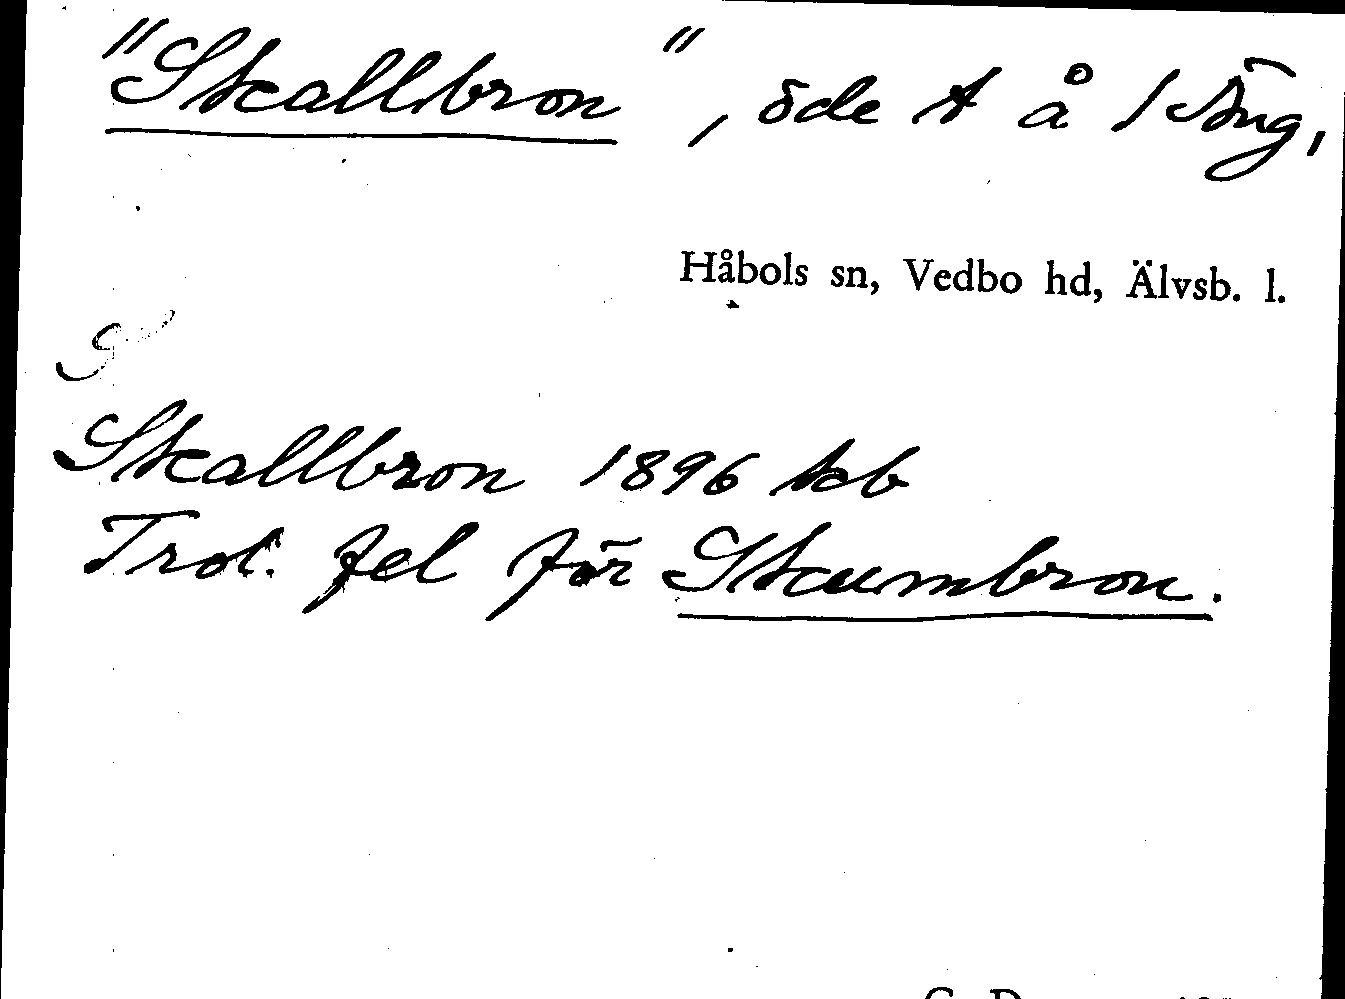 "Skallbron", öde t å 1 Äng,
Håbols sn, Vedbo hd, Älvsb. l.
S
Skallbron 1896 kb
Trol. fel för Skumbron.